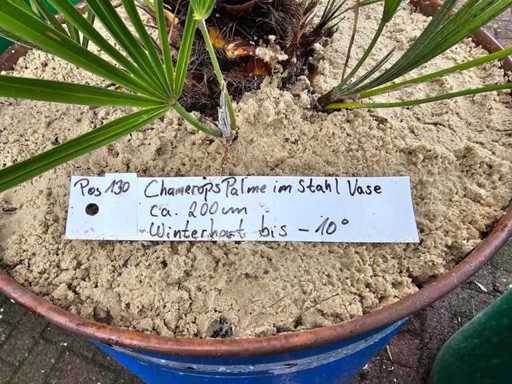 Pos 130 Chamerops Palme im Stahl Vase
ca. 200cm
Winterhart bis -10°